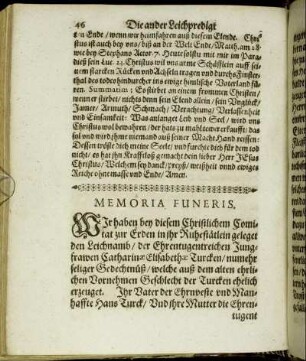 46 Die ander Leichpredigt
en Ende / wenn wir hainfahren auß diesem Elende. Chri-
stus ist auch bey uns / biß an der Welt Ende / Matth. am 28
wie bey Stephano Actor. 7. Heute solstu mit mir im Para-
diß sein Luc. 23 Christus wil uns arme Schäfflein auff sei-
nem starcken Rücken und Achseln tragen und durchs Finster-
thal des todes hindurcher ins ewige himlische Vaterland füh-
ren. Summarim; Es stirbet an einem frommen Christen /
wenner stirbet / nichts denn sein Elend allein / sein Unglück /
Jamer / Armuth / Schmach / Verachtung / Verlassenheit
und Einsamkeit: Was anlanget Leib und Seel / wird uns
Christus wol bewahren / der hats ja mahl tewer erkaufft / das
sol und wird ihme niemand auß seiner Macht Hand reissen:
Dessen tröste dich meine Seele / und fürchte dich für dem tod
nicht / er hat ihn Krafftloß gemacht dein lieber Herr JEsus
Christus / Welchem sey danck / preiß / weißheit unnd ewiges
Reich ohne masse und Ende / Amen.
MEMORIA FUNERIS.
WIr haben bey diesem Christlichem Comi-
tat zur Erden in ihr Ruhestätlein geleget
den Leichnamb / der Ehrentugentreichen Jung-
frawen Catharin-Elisabeth-Turcken / nunmehr
seliger Gedechtnüß / welche auß dem alten ehrli-
chen Vornehmen Geschlecht der Turcken ehelich
erzeuget. Ihr Vater der Ehrnveste und Man-
haffte Hans Turck / Und Ihre Mutter die Ehren-
tugent